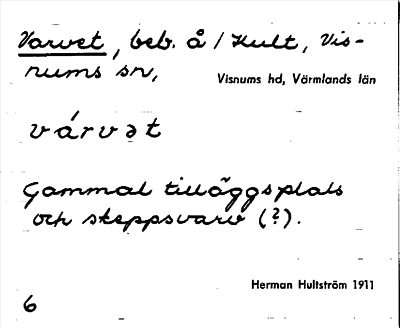 Varvet, beb. å / Hult, Vis-
nums sn,
Visnums hd, Värmlands län
várvət
Gammal tilläggsplats
och skeppsvarv (?).
Herman Hultström 1911
6